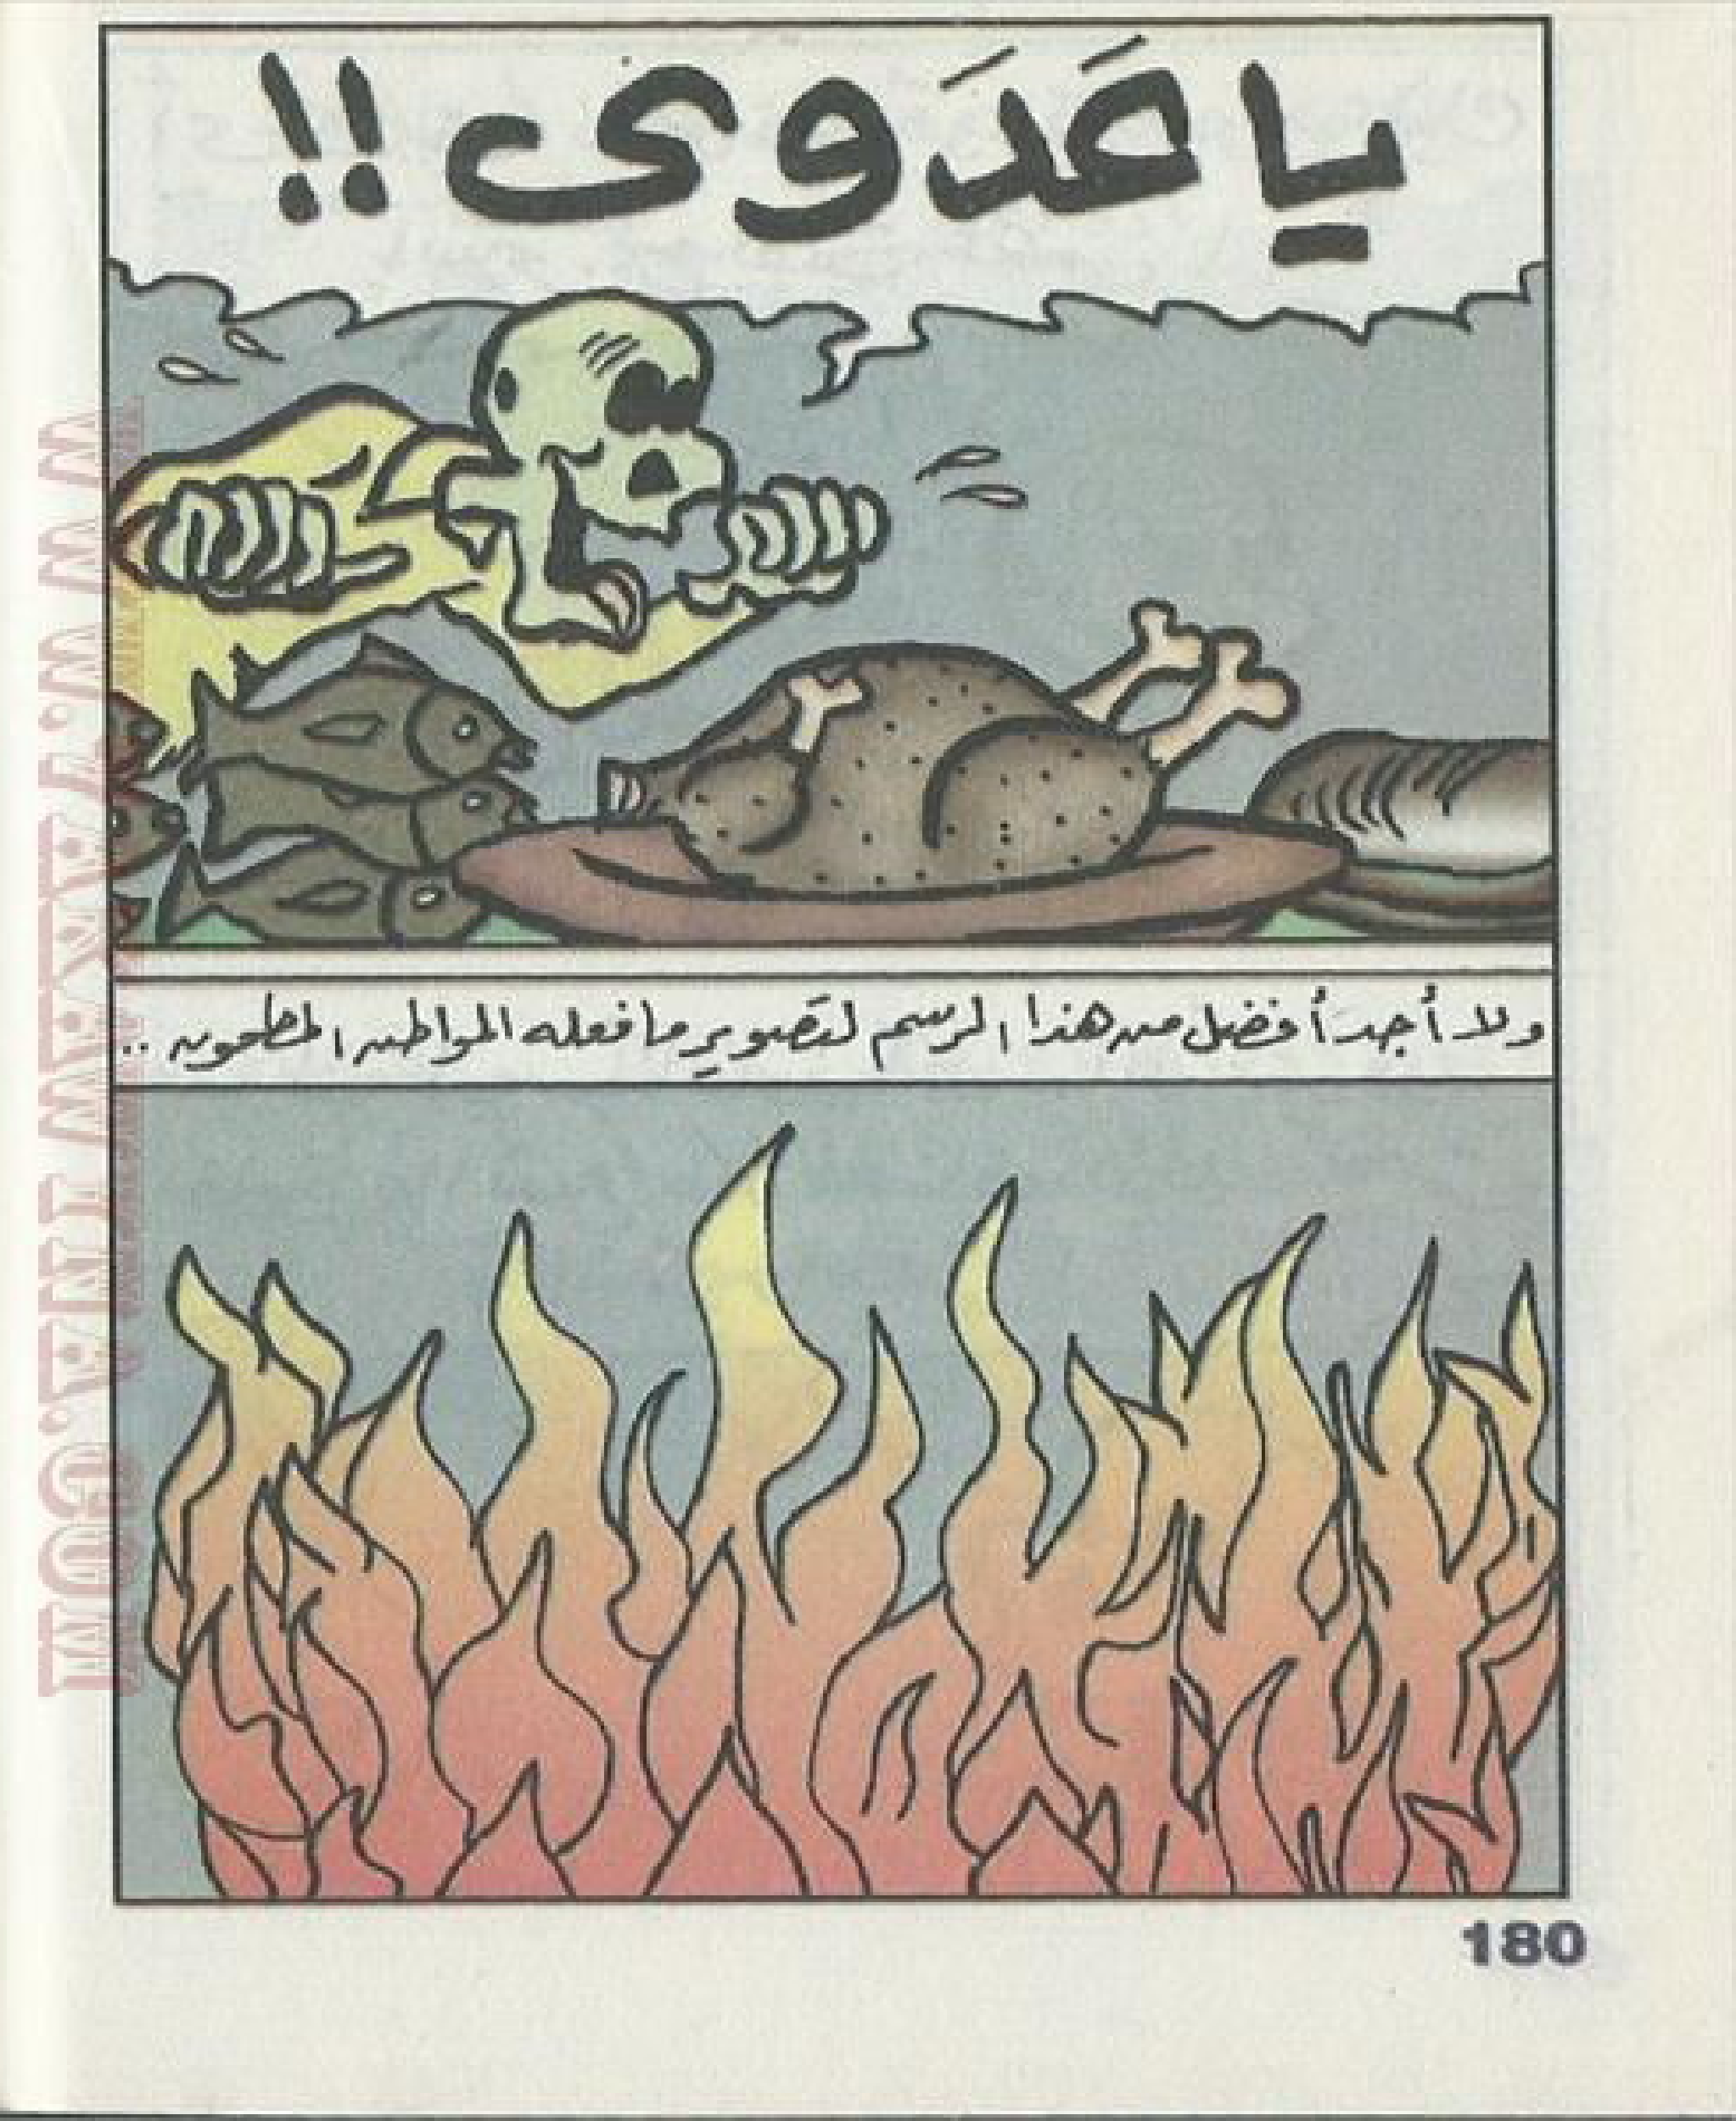 يا عَدَوى!!
ولا أجد أفضل من هذا الرسم لتصوير ما فعله المواطن المطحون ..
180